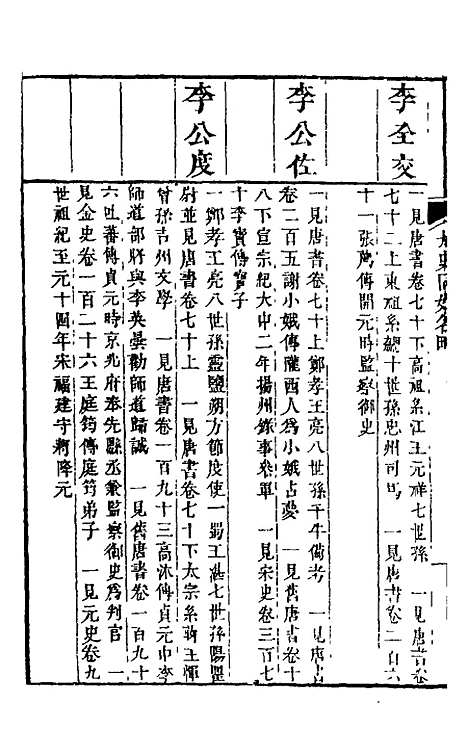 李全交
一見唐書卷七十下高祖系江王元祥七世孫　一見唐書卷
七十二上東祖系總十世孫忠州司馬　一見唐書卷二百六
十一張薦傳開元時監察御史
李公佐
一見唐書卷七十上鄭孝王亮八世孫千牛備考　一見唐書
卷二百五謝小娥傳隴西人為小娥占夢　一見舊唐書卷十
八下宣宗紀大中二年揚州錄事參軍　一見宋史卷三百七
十李寶傳寶子
李公度
一鄭孝王亮八世孫靈鹽朔方節度使一蜀王湛七世孫陽翟
尉並見唐書卷七十上　一見唐書卷七十下太宗系蔣王惲
曾孫吉州文學　一見唐書卷一百九十三高沐傳貞元中李
師道部將與李英曇勸師道歸誠　一見舊唐書卷一百九十
六吐蕃傳貞元時京兆府奉先縣丞兼監察御史為判官　一
見金史卷一百二十六王庭筠傳庭筠弟子　一見元史卷九
世祖紀至元十四年宋福建守將降元